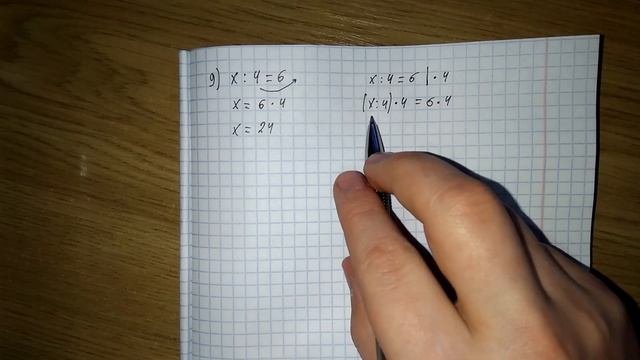 9) x : 4 = 6
x = 6 · 4
x = 24
x : 4 = 6 | · 4
(x : 4) · 4 = 6 · 4